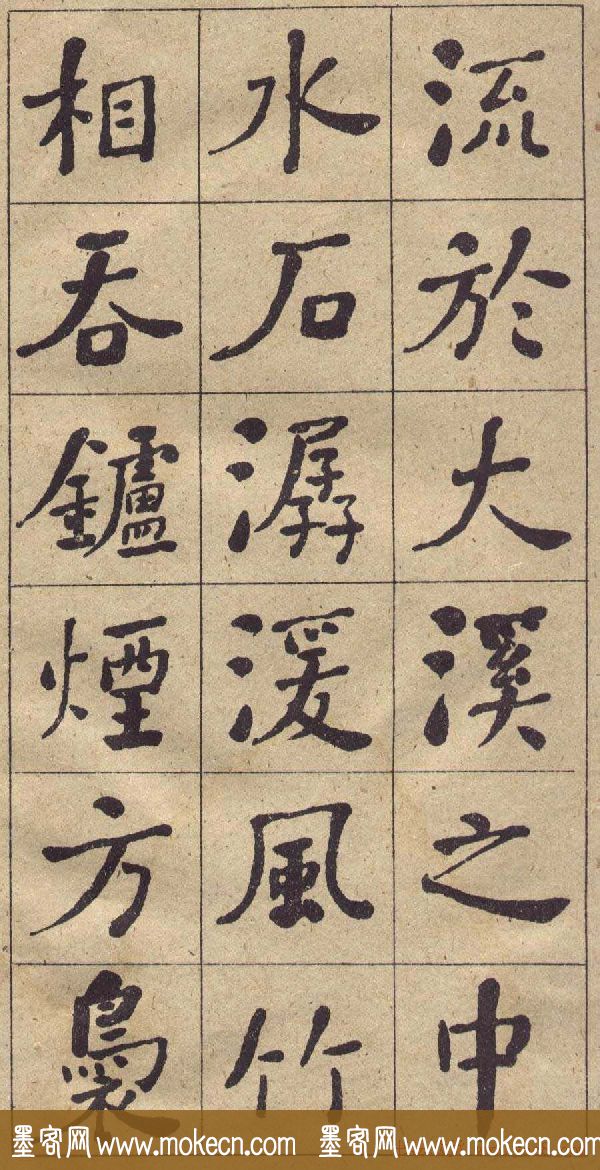 流於大溪之中
水石潺湲風竹
相吞鑪煙方裊
墨客网 www.mokecn.com 墨客网 www.mokecn.com